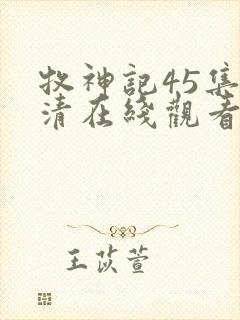 牧神記45集
清在綫觀看
王苡萱